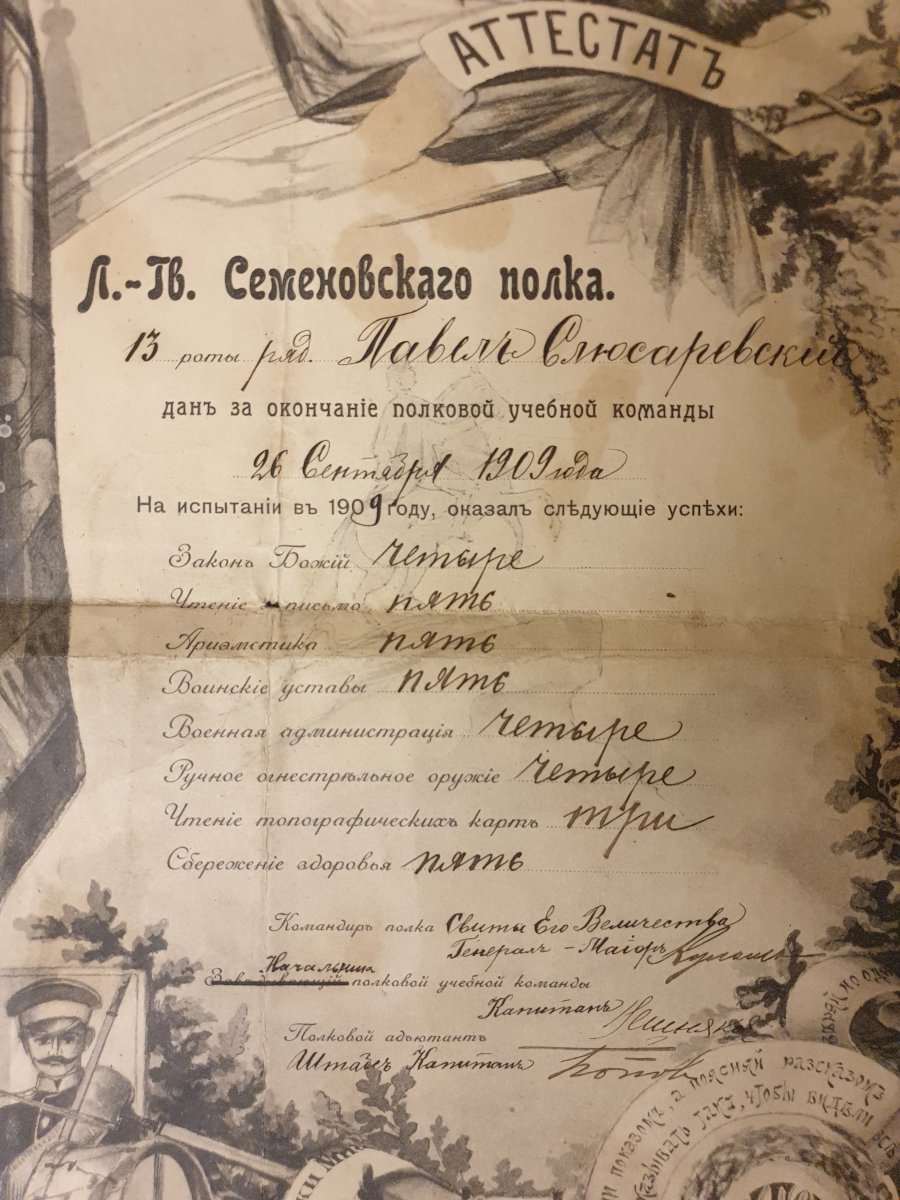 АТТЕСТАТЪ
Л.-Гв. Семеновскаго полка.
13 роты ряд. Павелъ Слюсаревский
данъ за окончаніе полковой учебной команды
26 Сентября 1909 года
На испытаніи въ 1909 году, оказалъ слѣдующіе успѣхи:
Законъ Божій четыре
Чтеніе и письмо пять
Ариѳметика пять
Воинскіе уставы пять
Военная администрація четыре
Ручное огнестрѣльное оружіе четыре
Чтеніе топографическихъ картъ три
Сбереженіе здоровья пять
Командиръ полка Свиты Его Величества
Генералъ-Маіоръ
Начальникъ
Завѣдывающій полковой учебной команды
Капитанъ
Полковой адъютантъ
Штабсъ Капитанъ Поповъ
показомъ, а поясняй разсказомъ
такъ, чтобы видѣли